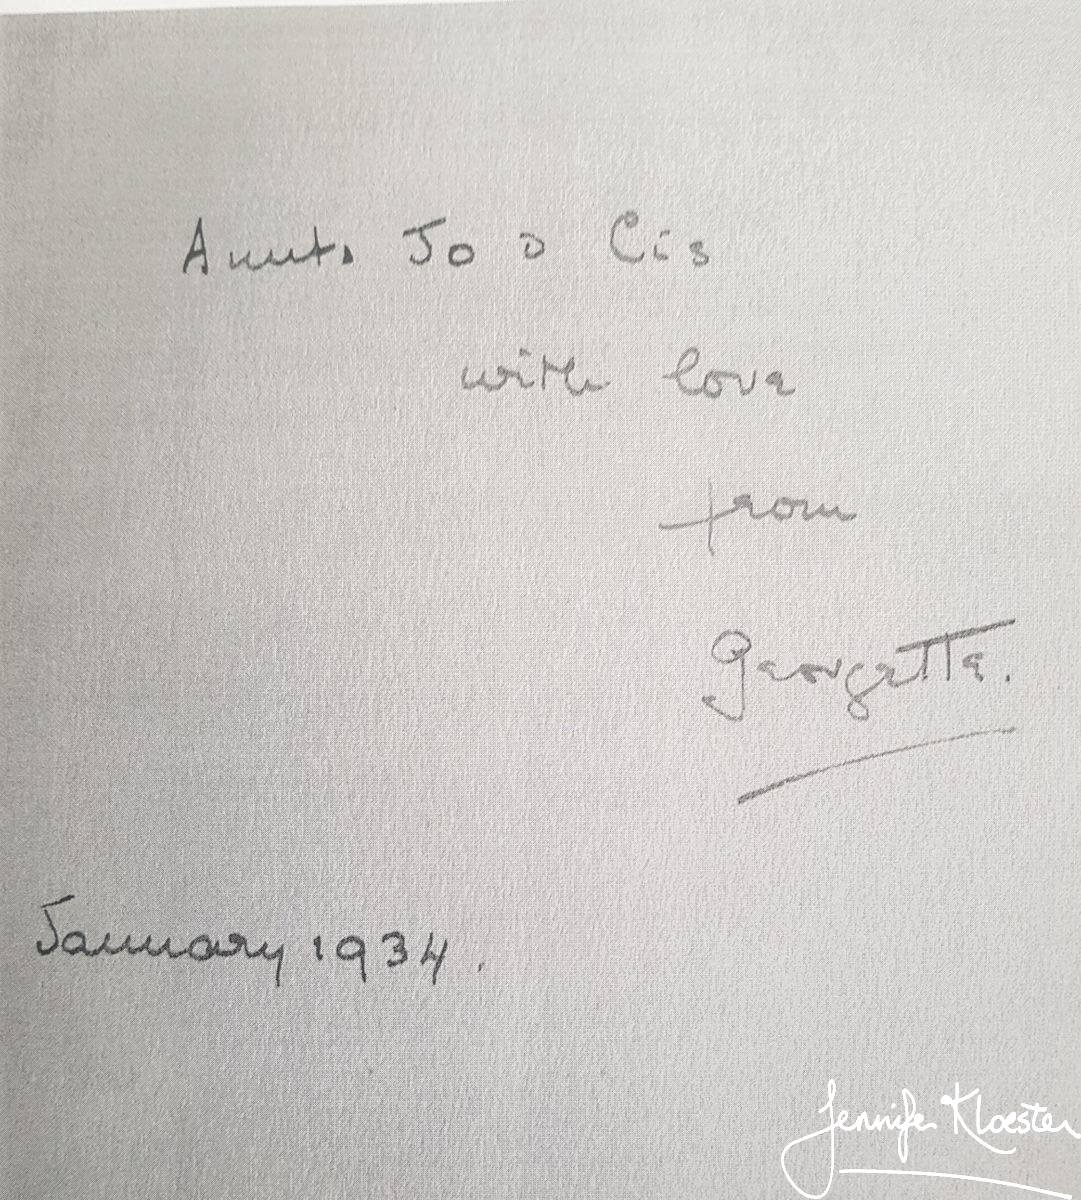 Aunts Jo & Cis
with love
from
Georgette.
January 1934.
Jennifer Kloester